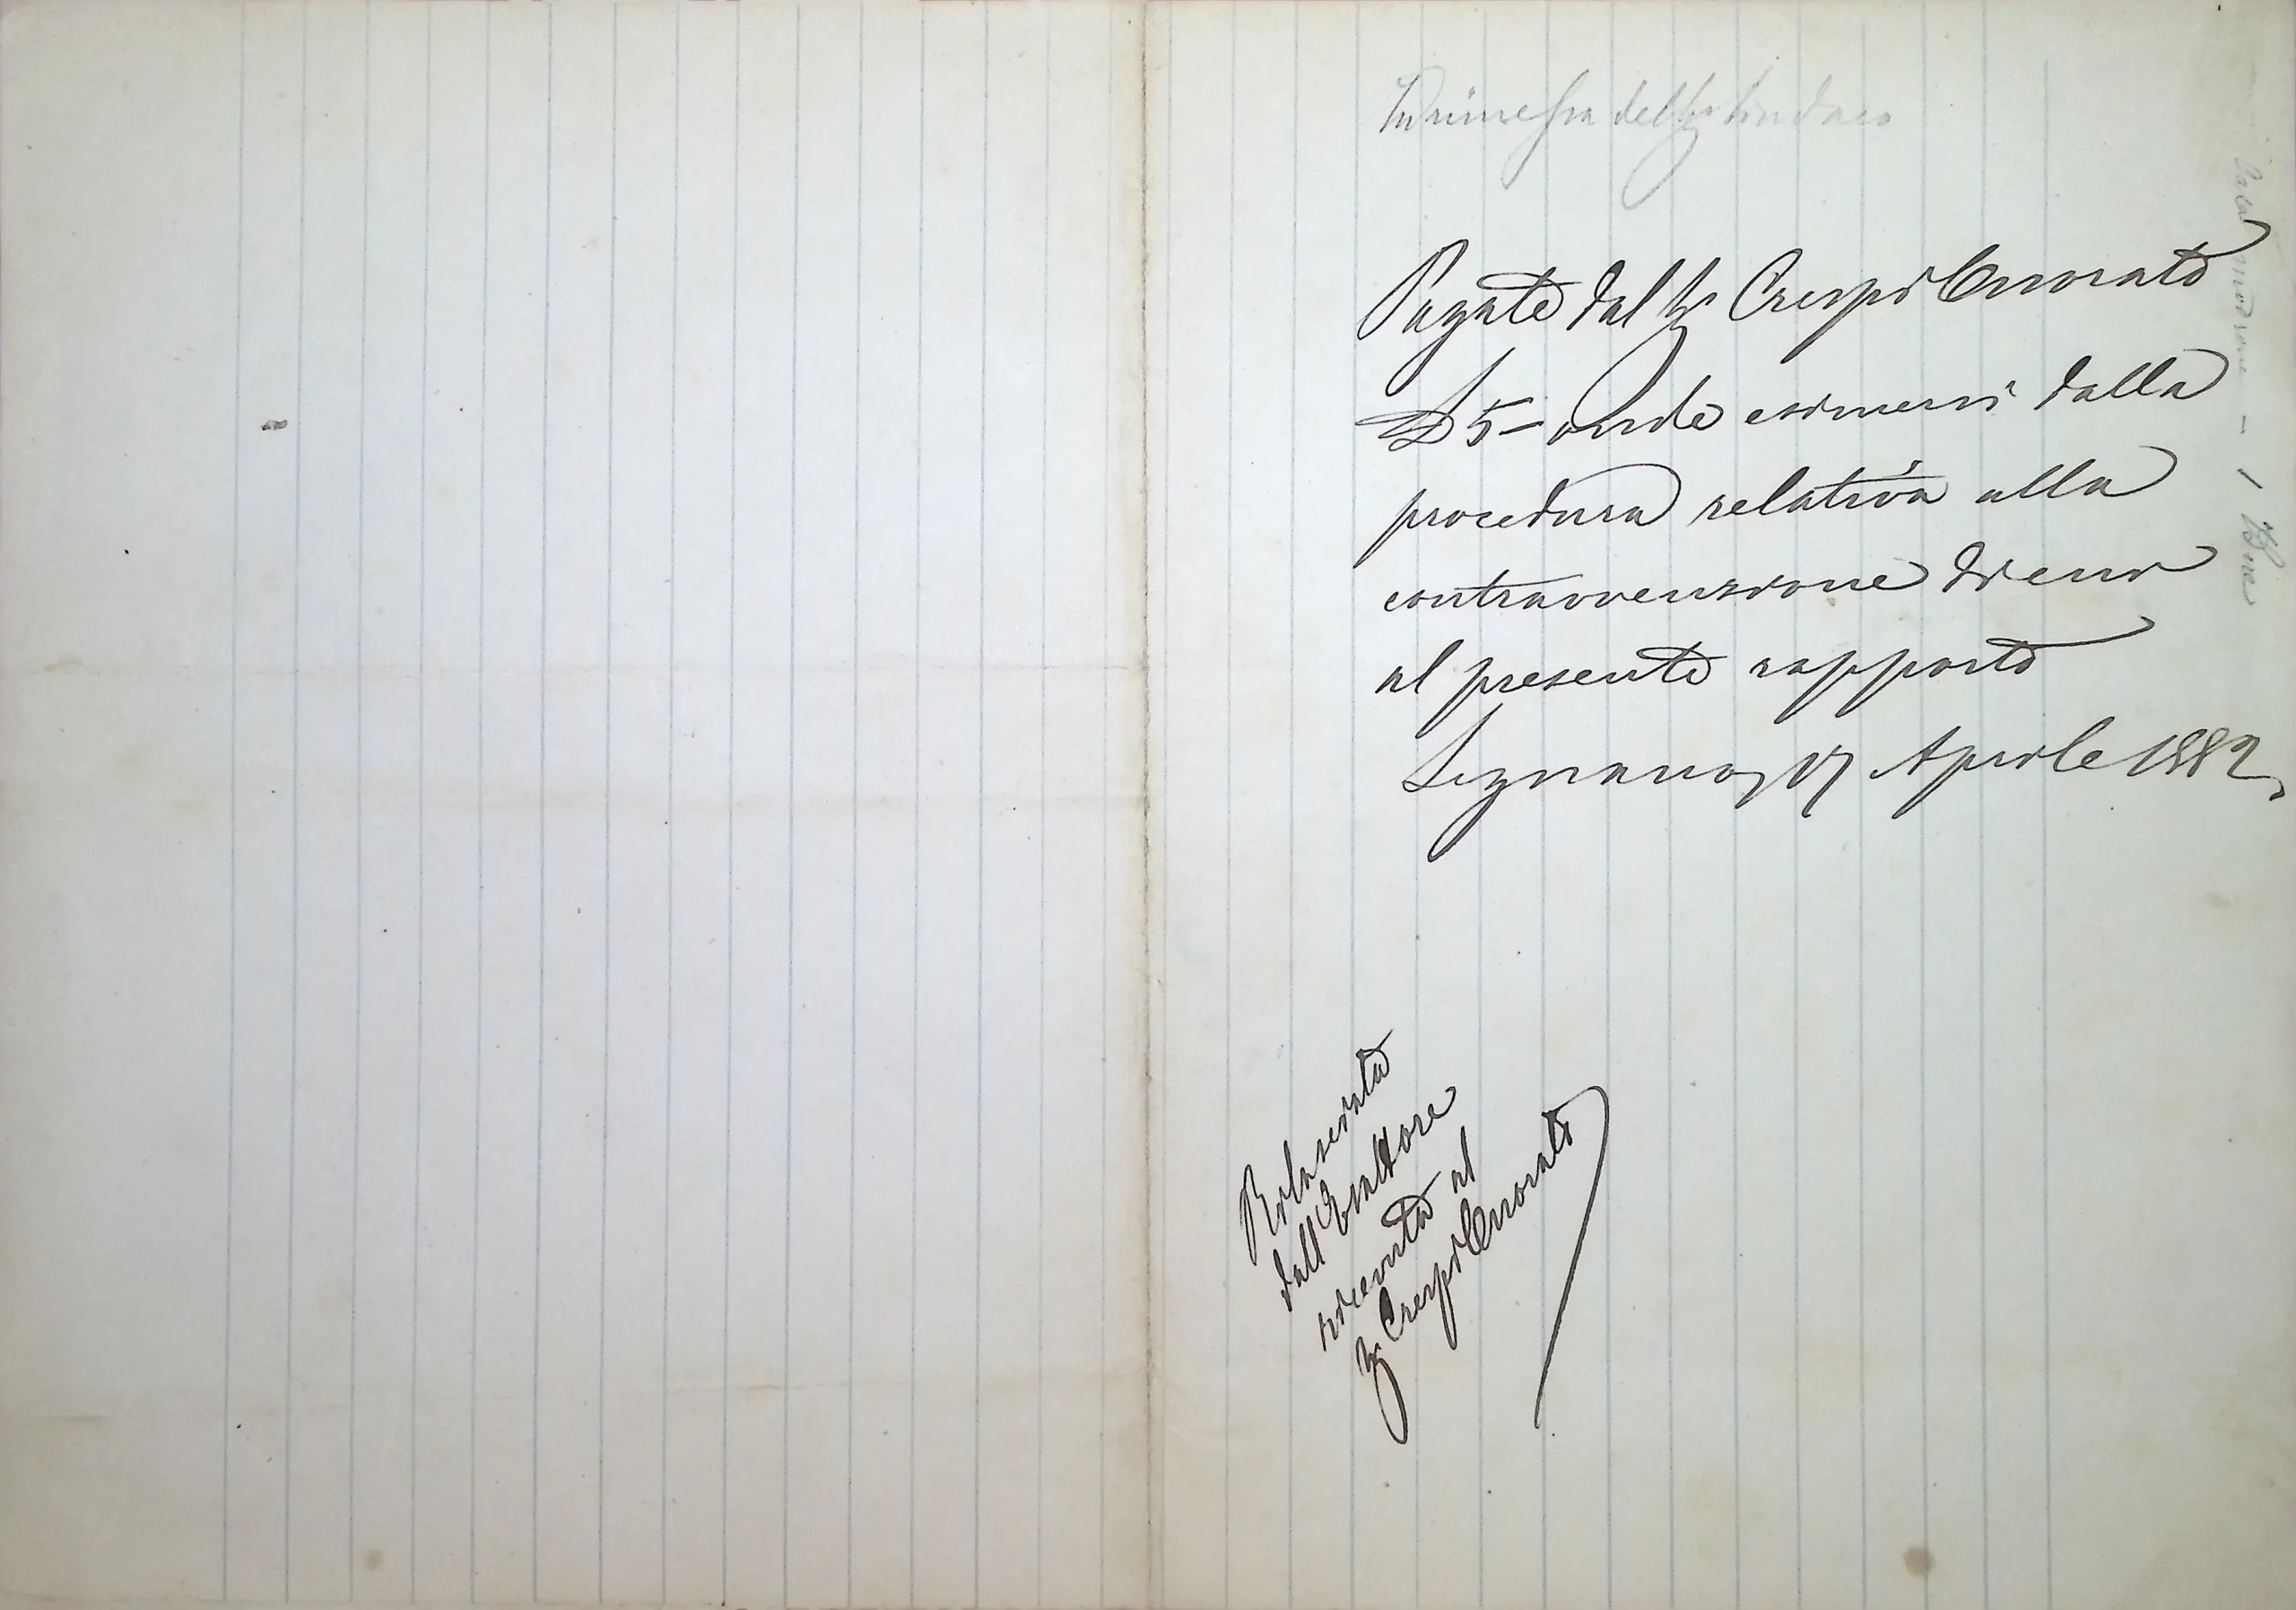 In rimessa del Sr Sindaco
Pagate dal Sr Crespi Onorato
L 5 – onde esimersi dalla
procedura relativa alla
contravvenzione di cui
al presente rapporto
Legnano, 17 Aprile 1882
Rilasciata
dall'Esattore
ricevuta al
Sr Crespi Onorato